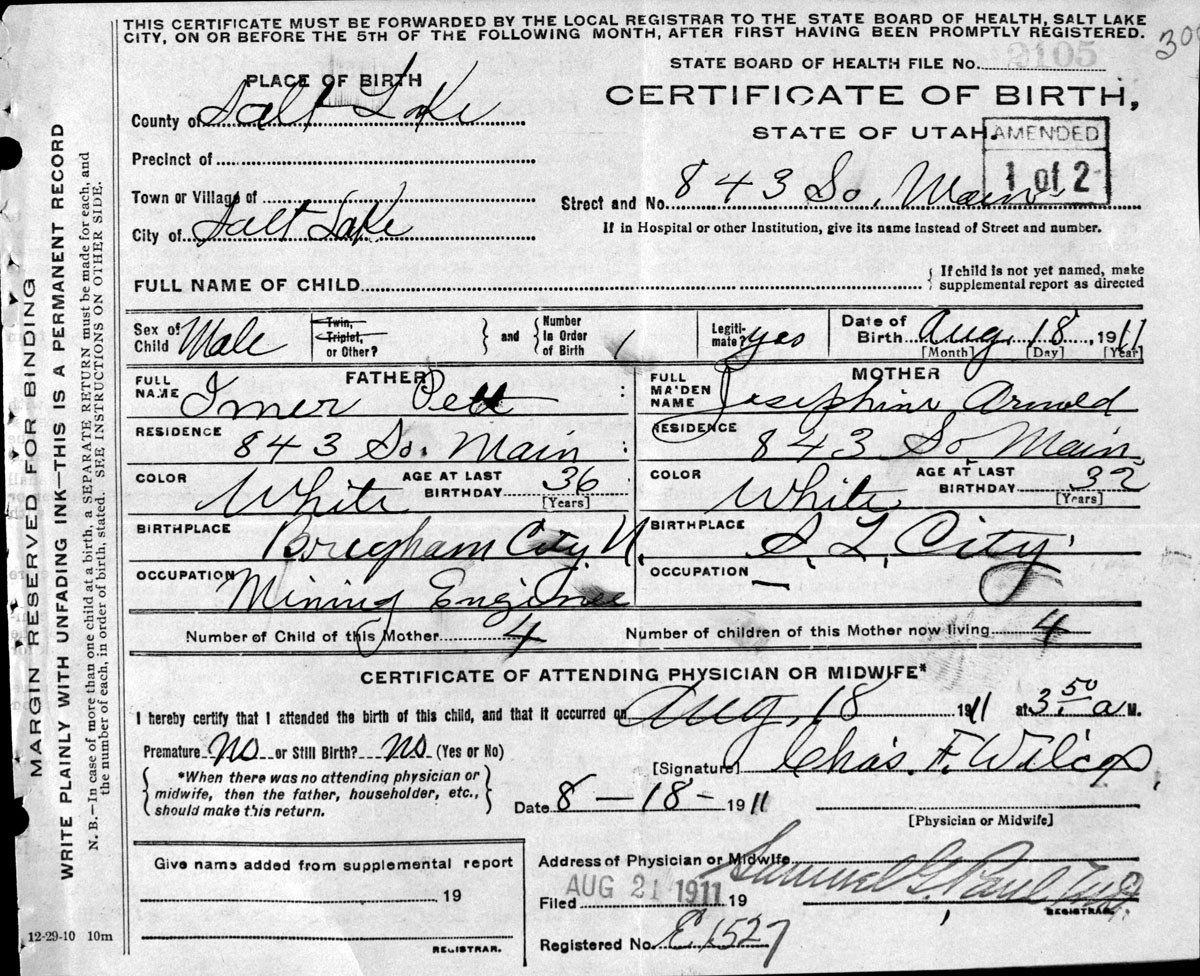 THIS CERTIFICATE MUST BE FORWARDED BY THE LOCAL REGISTRAR TO THE STATE BOARD OF HEALTH, SALT LAKE
CITY, ON OR BEFORE THE 5TH OF THE FOLLOWING MONTH, AFTER FIRST HAVING BEEN PROMPTLY REGISTERED.
STATE BOARD OF HEALTH FILE No. 2105
PLACE OF BIRTH
CERTIFICATE OF BIRTH,
County of Salt Lake
STATE OF UTAH.
AMENDED
1 of 2
Precinct of
Town or Village of
Street and No. 843 So. Main
City of Salt Lake
If in Hospital or other Institution, give its name instead of Street and number.
FULL NAME OF CHILD
{ If child is not yet named, make
supplemental report as directed
Sex of Child Male
Twin, Triplet, or Other?
and { Number In Order of Birth 1
Legiti-mate? yes
Date of Birth Aug. 18, 1911
[Month] [Day] [Year]
FATHER
MOTHER
FULL NAME Imer Pett
FULL MAIDEN NAME Josephine Arnold
RESIDENCE 843 So. Main
RESIDENCE 843 So Main
COLOR White AGE AT LAST BIRTHDAY 36 [Years]
COLOR White AGE AT LAST BIRTHDAY 32 [Years]
BIRTHPLACE Brigham City, U.
BIRTHPLACE S. L. City.
OCCUPATION Mining Enginee
OCCUPATION —
Number of Child of this Mother 4
Number of children of this Mother now living 4
CERTIFICATE OF ATTENDING PHYSICIAN OR MIDWIFE*
I hereby certify that I attended the birth of this child, and that it occurred on Aug. 18 1911 at 3.50 a M.
Premature No or Still Birth? No (Yes or No)
[Signature] Chas. F. Wilcox,
{ *When there was no attending physician or
midwife, then the father, householder, etc.,
should make this return. }
Date 8 – 18 – 1911
[Physician or Midwife]
Give name added from supplemental report
19
REGISTRAR.
Address of Physician or Midwife
Filed AUG 21 1911 19
Samuel G. Paul
REGISTRAR.
Registered No. E1527
12-29-10 10m
MARGIN RESERVED FOR BINDING
WRITE PLAINLY WITH UNFADING INK—THIS IS A PERMANENT RECORD
N. B.—In case of more than one child at a birth, a SEPARATE RETURN must be made for each, and
the number of each, in order of birth, stated. SEE INSTRUCTIONS ON OTHER SIDE.